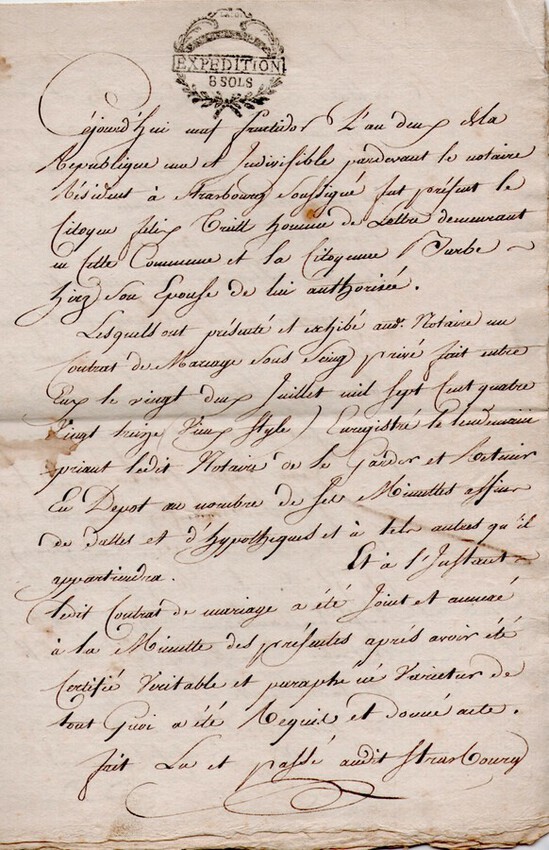 EXPEDITION
8 SOLS
Cejourd'hui neuf fructidor L'an deux de la
Republique une et Indivisible pardevant le notaire
Résident à Strasbourg Soussigné fut présent le
Citoyen felix homme de Lettre demeurant
en Cette Commune et la Citoyenne Barbe
son Epouse de lui authorisée.
Lesquels ont présenté et exhibé aud. Notaire un
Contrat de Mariage Sous Seing privé fait entre
Eux le vingt deux Juillet mil Sept Cent quatre
Vingt treize (Vieux Style) Enregistré le lendemain
priant ledit Notaire de le Garder et Retenir
En Depot au nombre de ses Minuttes affin
de dattes et d'hypotheques et à tels autres qu'il
appartiendra. Et à l'Instant
ledit Contrat de mariage a été Joint et annexé
à la Minutte des présentes après avoir été
Certifié Veritable et paraphé né Varietur de
tout Quoi a été Requis et donné acte.
fait Lu et passé audit Strasbourg